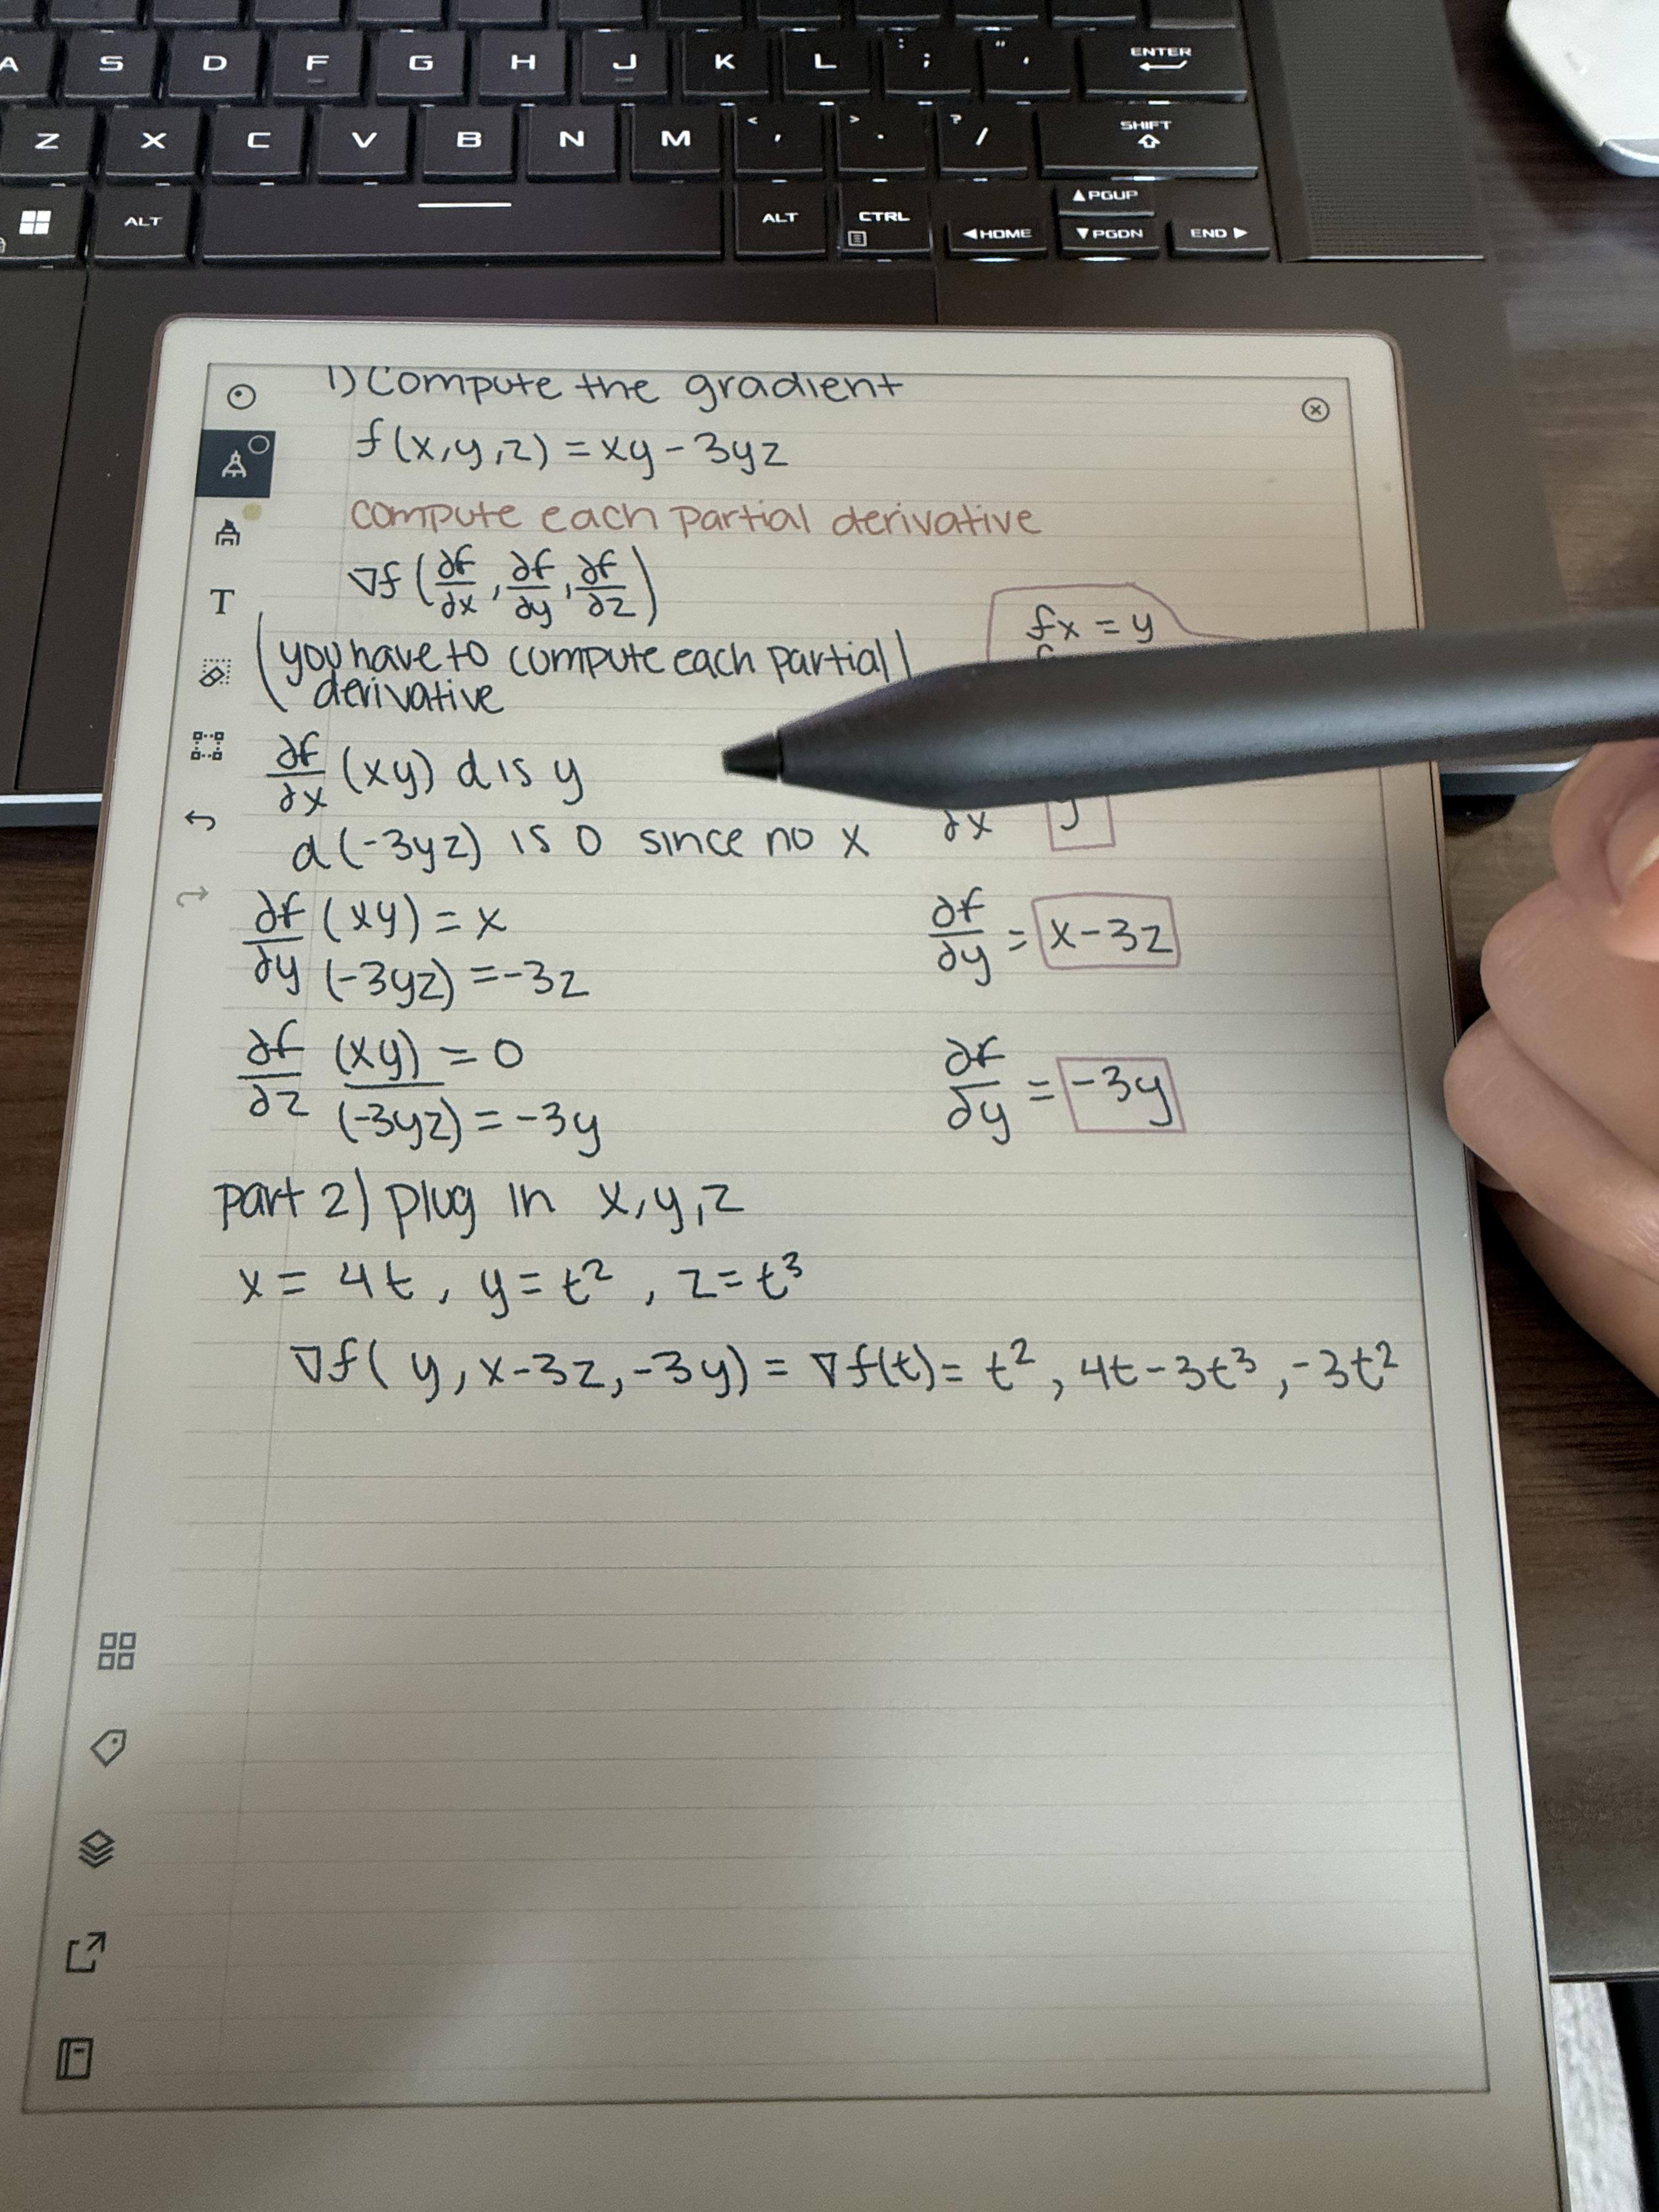 A S D F G H J K L : ; " ' ENTER
Z X C V B N M < , > . ? / SHIFT
ALT ALT CTRL ◀HOME ▲PGUP ▼PGDN END▶
1) Compute the gradient
f(x,y,z) = xy - 3yz
compute each partial derivative
∇f (∂f/∂x, ∂f/∂y, ∂f/∂z)
fx = y
T
(you have to compute each partial)
derivative
∂f/∂x (xy) d is y
∂x y
d(-3yz) is 0 since no x
∂f/∂y (xy) = x
(-3yz) = -3z
∂f/∂y = x-3z
∂f/∂z (xy) = 0
(-3yz) = -3y
∂f/∂y = -3y
part 2) plug in x,y,z
x = 4t, y = t², z = t³
∇f( y, x-3z, -3y) = ∇f(t) = t², 4t-3t³, -3t²